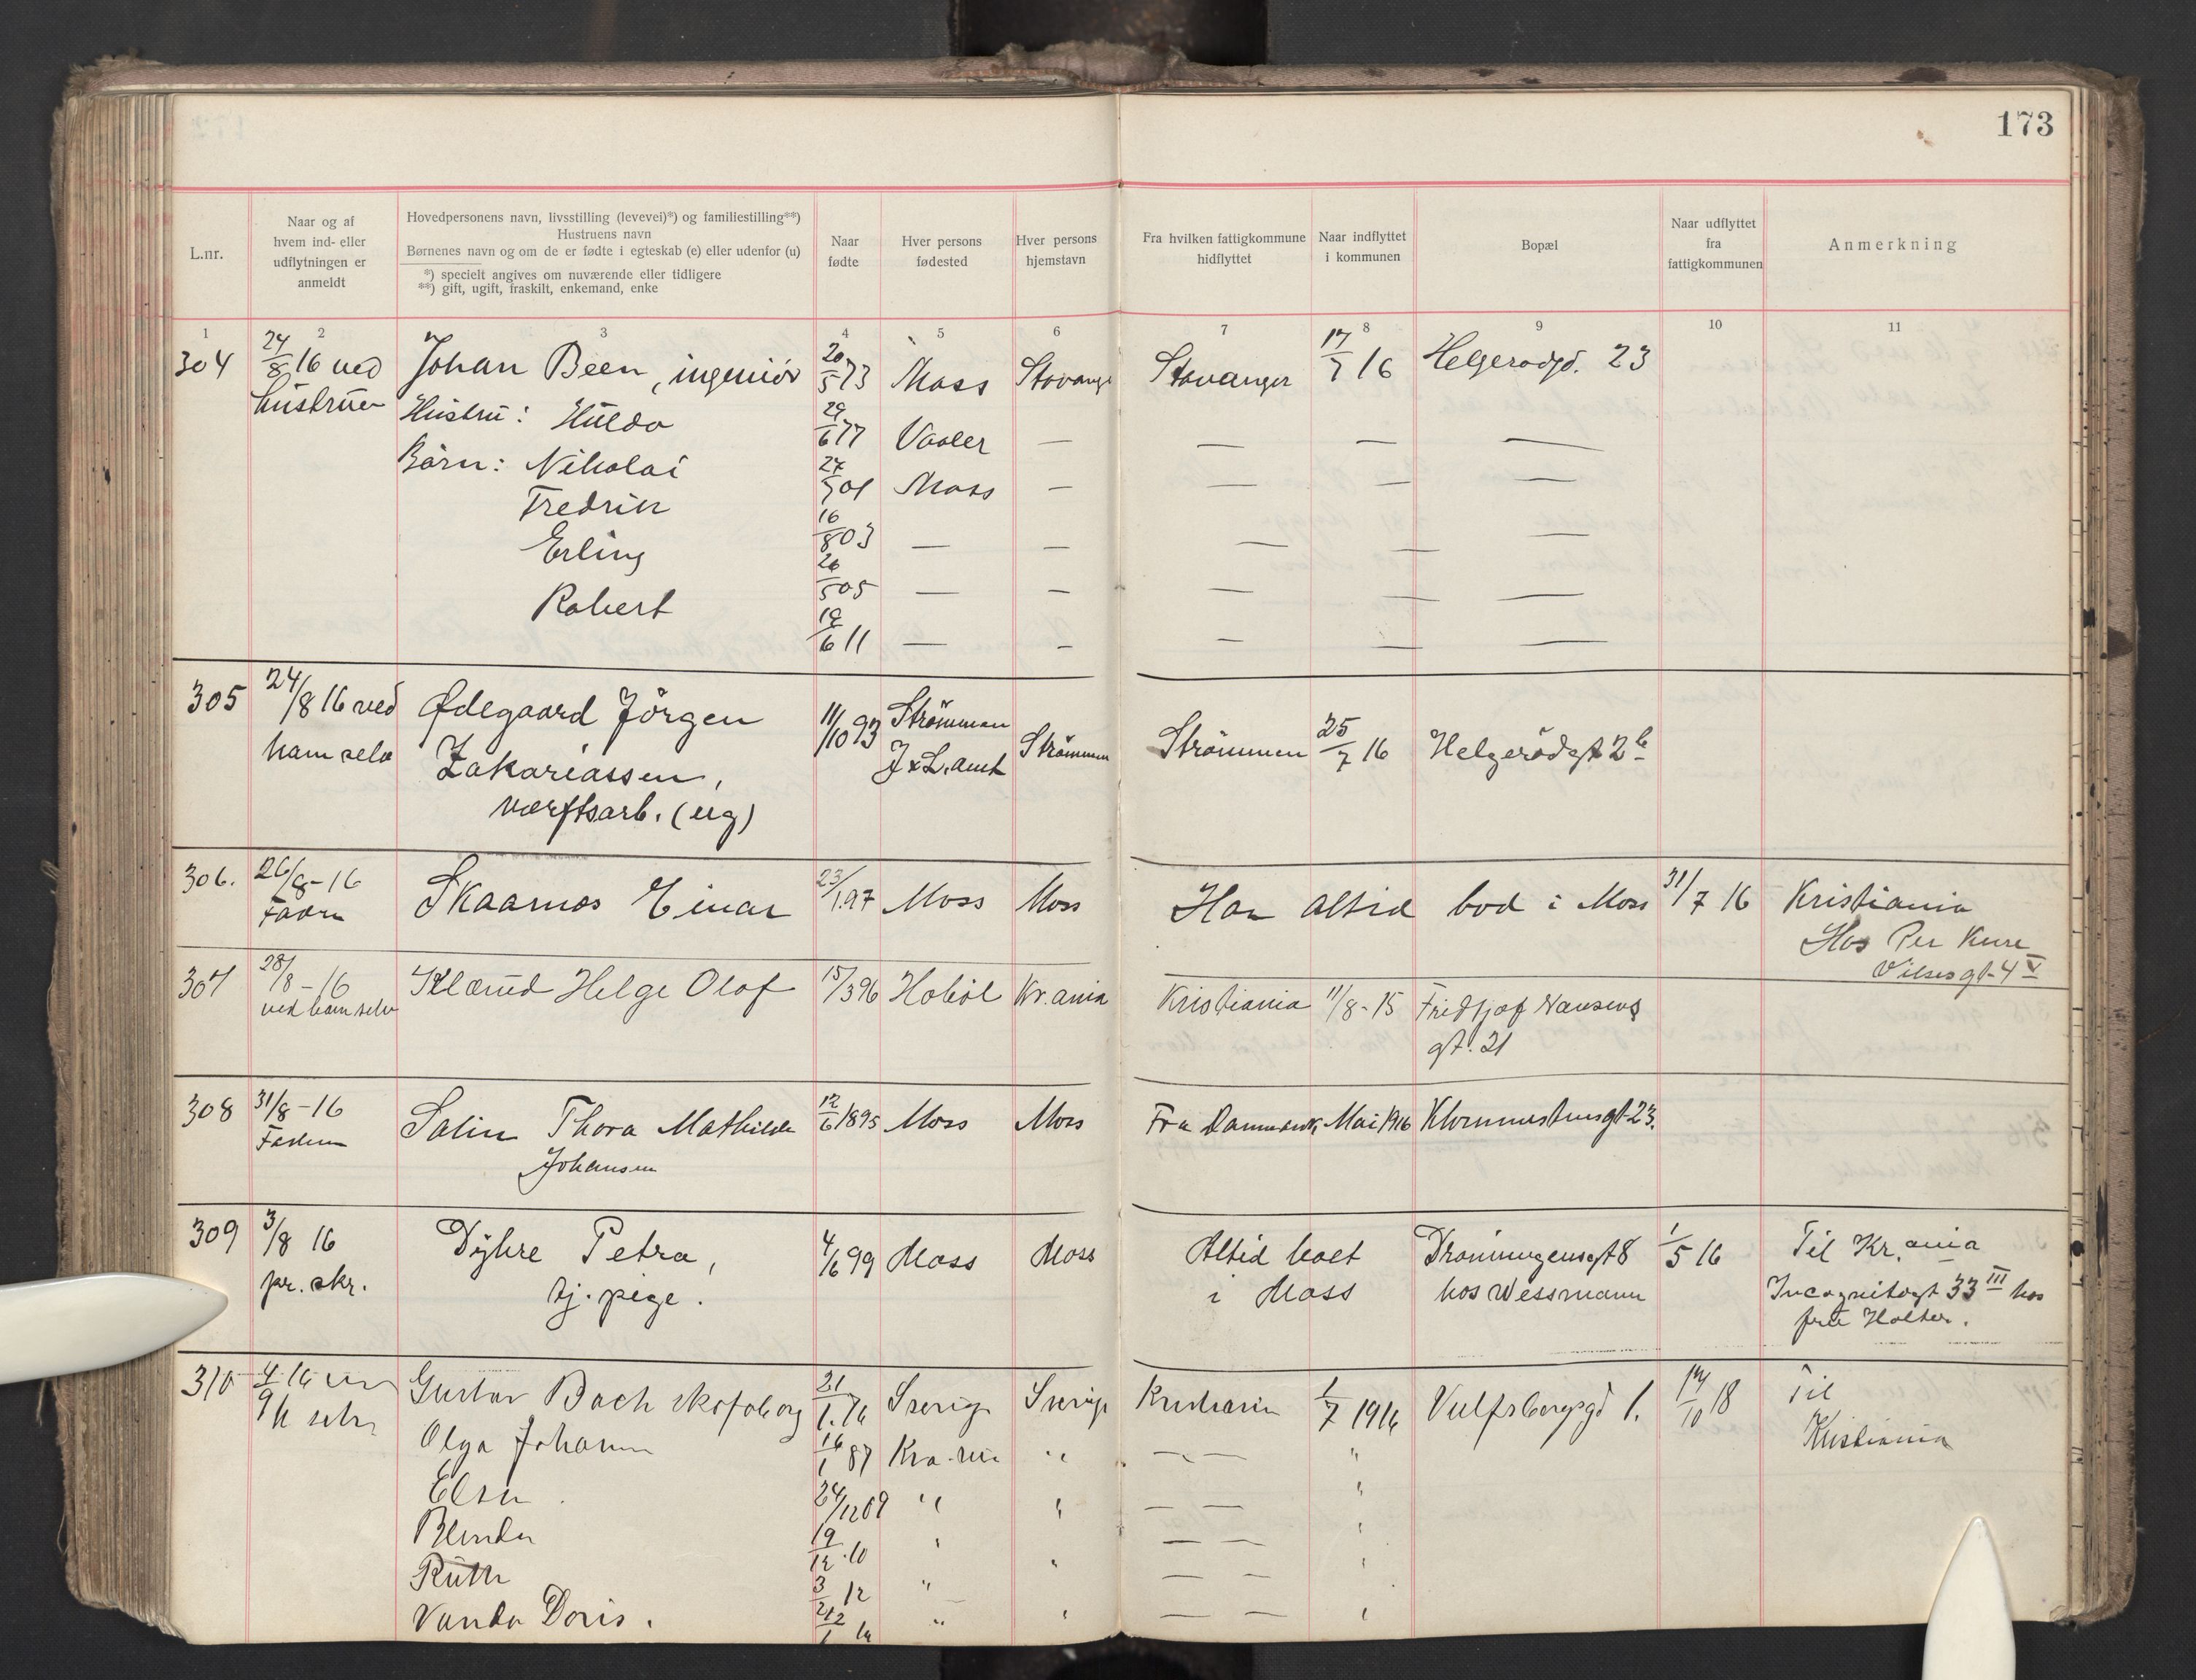 173
L.nr.
Naar og af
hvem ind- eller
udflytningen er
anmeldt
Hovedpersonens navn, livsstilling (levevei)*) og familiestilling**)
Hustruens navn
Børnenes navn og om de er fødte i egteskab (e) eller udenfor (u)
*) specielt angives om nuværende eller tidligere
**) gift, ugift, fraskilt, enkemand, enke
Naar
fødte
Hver persons
fødested
Hver persons
hjemstavn
Fra hvilken fattigkommune
hidflyttet
Naar indflyttet
i kommunen
Bopæl
Naar udflyttet
fra
fattigkommunen
Anmerkning
1 2 3 4 5 6 7 8 9 10 11
304 24/8 16 ved Johan Been, ingeniör 20/5 73 Moss Stavanger Stavanger 17/7 16 Helgerødgd. 23
hustruen Hustru: Hulda 29/6 77 Vaaler — — — —
Börn: Nikolai 27/7 01 Moss — — — —
Fredrik 16/8 03 — — — — —
Erling 26/5 05 — — — — —
Robert 19/6 11 — — — — —
305 24/8 16 ved Ødegaard Jörgen 11/10 93 Strömmen Strömmen Strömmen 25/7 16 Helgerödgt 2b
ham selv Zakariassen, J & L. amt
værftsarb. (ug)
306. 26/8-16 Skaarnæs Einar 23/1 97 Moss Moss Har altid bod i Moss 31/7 16 Kristiania
Fadren Hos Per Kure
Vilsesgt-4 V
307 28/8-16 Klærud Helge Olaf 15/3 96 Hobøl Kr.ania Kristiania 11/8-15 Fridtjof Nansens
ved ham selv gt. 21
308 31/8-16 Salin Thora Mathilde 12/6 1895 Moss Moss Fra Danmark, Mai 1916 gt-23.
Faderen Johansen
309 3/8 16 Dyhre Petra, 4/6 99 Moss Moss Altid boet Dronningensgt 8 1/5 16 Til Kr.ania
pr. skr. tj. pige. i Moss hos Wessmann Incognitogt 33 III hos
fru Holter.
310 4/9 16 Gustav Bach 21/1. 76 Sverige Sverige Kristiania 1/7 1916 Vulfsbergsgd 1. 14/10 18 Til
selv Olga Johanne 16/1 87 Kra.nia " — — " Kristiania
Elsa 24/12 09 " " — — "
Blenda 19/12 .10 " — — "
Ruth 3/2 12 " " — — "
Vanda Doris. 22/1 14 " " — — "